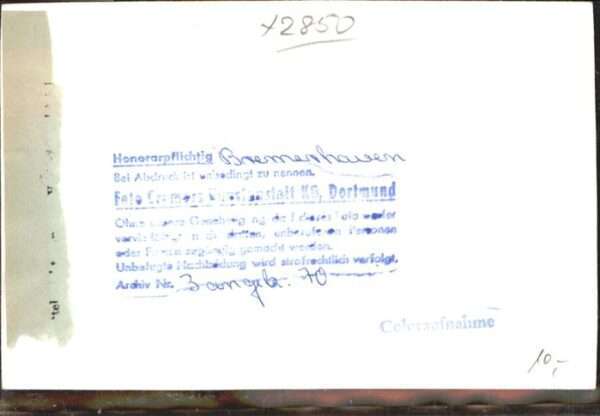 x2850
Honorarpflichtig Bremerhaven
Bei Abdruck ist unbedingt zu nennen.
Foto Cramers Kunstanstalt KG, Dortmund
Ohne unsere Genehmigung darf dieses Foto weder
vervielfältigt noch dritten, unberufenen Personen
oder Firmen zugängig gemacht werden.
Unbefugte Nachbildung wird strafrechtlich verfolgt.
Archiv Nr. 70
Coloraufnahme
10,-
tel